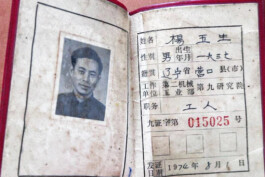 姓名 楊玉生
性別 男 出生年月 一九三七
籍贯 辽宁省营口县(市)
工作单位 第二机械工业部 第九研究院
职务 工人
九证字第 015025 号
发证日期 1976年